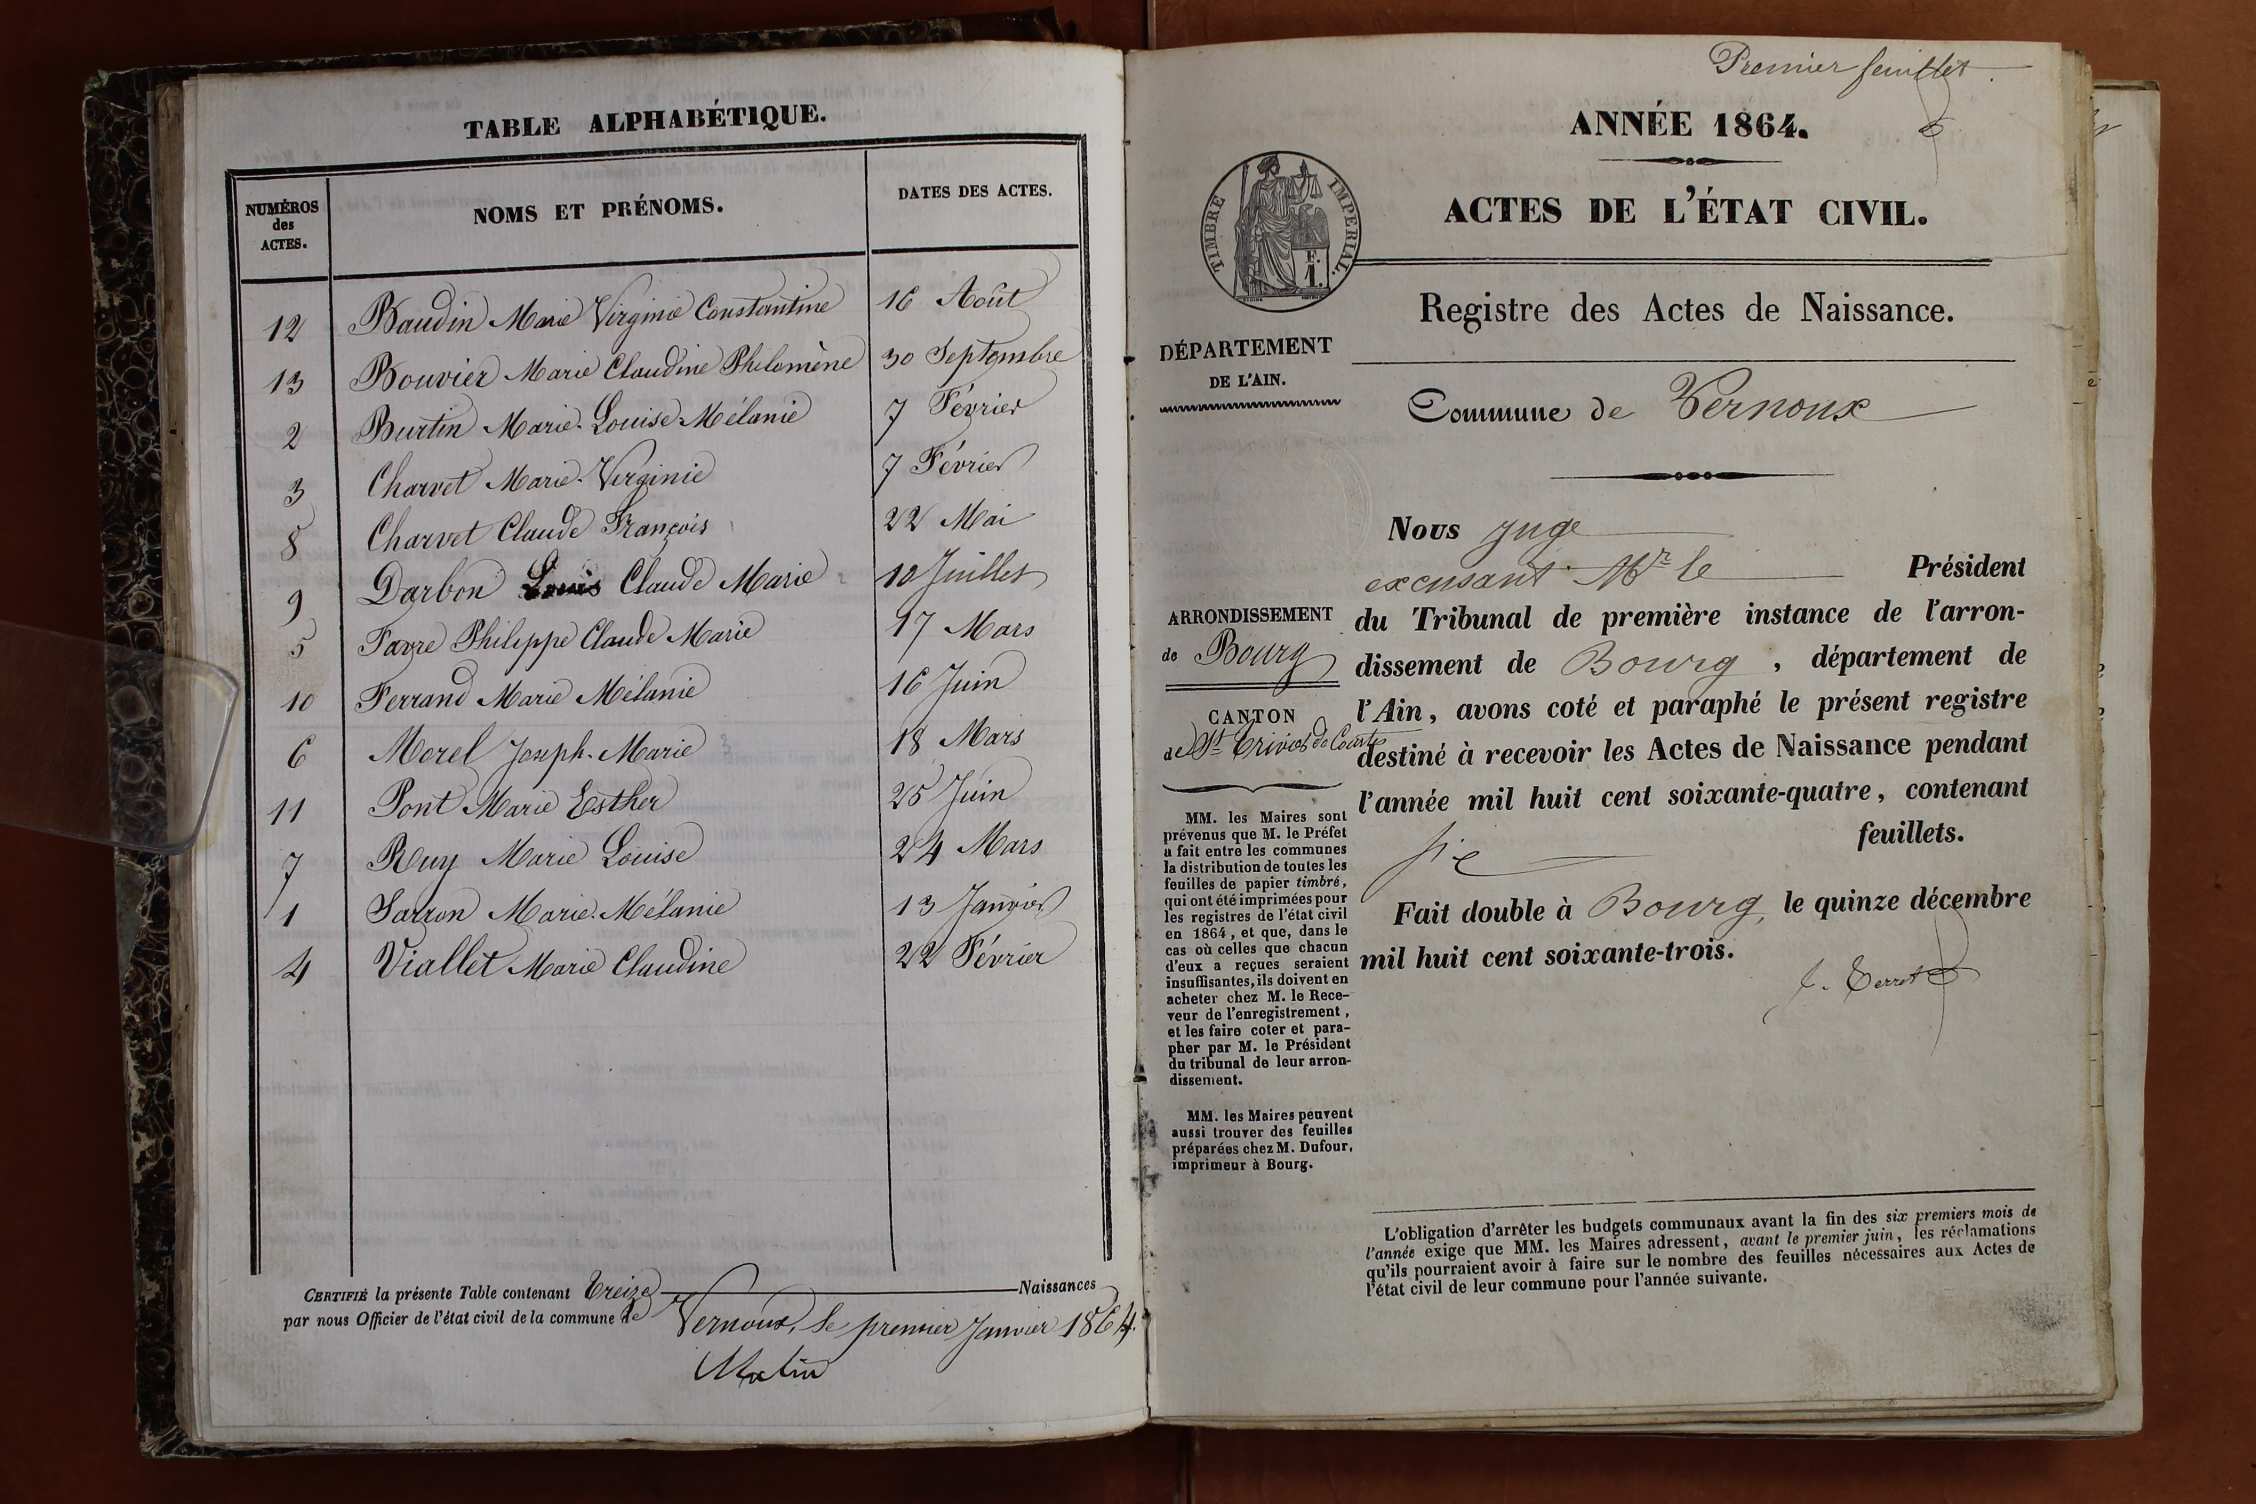 TABLE ALPHABÉTIQUE.
NUMÉROS des ACTES. NOMS ET PRÉNOMS. DATES DES ACTES.
12 Baudin Marie Virginie Constantine 16 Août
13 Bouvier Marie Claudine Philomène 30 Septembre
2 Burtin Marie-Louise-Mélanie 7 Février
3 Charvet Marie-Virginie 7 Février
8 Charvet Claude François 22 Mai
9 Darbon Louis Claude Marie 10 Juillet
5 Favre Philippe Claude Marie 17 Mars
10 Ferrand Marie Mélanie 16 Juin
6 Morel Joseph-Marie 18 Mars
11 Pont Marie Esther 25 Juin
7 Ruy Marie Louise 24 Mars
1 Sarron Marie-Mélanie 13 Janvier
4 Viallet Marie Claudine 22 Février
CERTIFIÉ la présente Table contenant treize Naissances
par nous Officier de l'état civil de la commune de Vernoux, le premier Janvier 1864.
Premier feuillet.
ANNÉE 1864.
ACTES DE L'ÉTAT CIVIL.
TIMBRE IMPERIAL.
F.
1.
Registre des Actes de Naissance.
DÉPARTEMENT
DE L'AIN.
Commune de Vernoux
Nous juge
excusant Mr le Président
du Tribunal de première instance de l'arron-
dissement de Bourg, département de
l'Ain, avons coté et paraphé le présent registre
destiné à recevoir les Actes de Naissance pendant
l'année mil huit cent soixante-quatre, contenant
six feuillets.
Fait double à Bourg, le quinze décembre
mil huit cent soixante-trois.
ARRONDISSEMENT
de Bourg
CANTON
de St Trivier de Courtes
MM. les Maires sont
prévenus que M. le Préfet
a fait entre les communes
la distribution de toutes les
feuilles de papier timbré,
qui ont été imprimées pour
les registres de l'état civil
en 1864, et que, dans le
cas où celles que chacun
d'eux a reçues seraient
insuffisantes, ils doivent en
acheter chez M. le Rece-
veur de l'enregistrement,
et les faire coter et para-
pher par M. le Président
du tribunal de leur arron-
dissement.
MM. les Maires peuvent
aussi trouver des feuilles
préparées chez M. Dufour,
imprimeur à Bourg.
L'obligation d'arrêter les budgets communaux avant la fin des six premiers mois de
l'année exige que MM. les Maires adressent, avant le premier juin, les réclamations
qu'ils pourraient avoir à faire sur le nombre des feuilles nécessaires aux Actes de
l'état civil de leur commune pour l'année suivante.